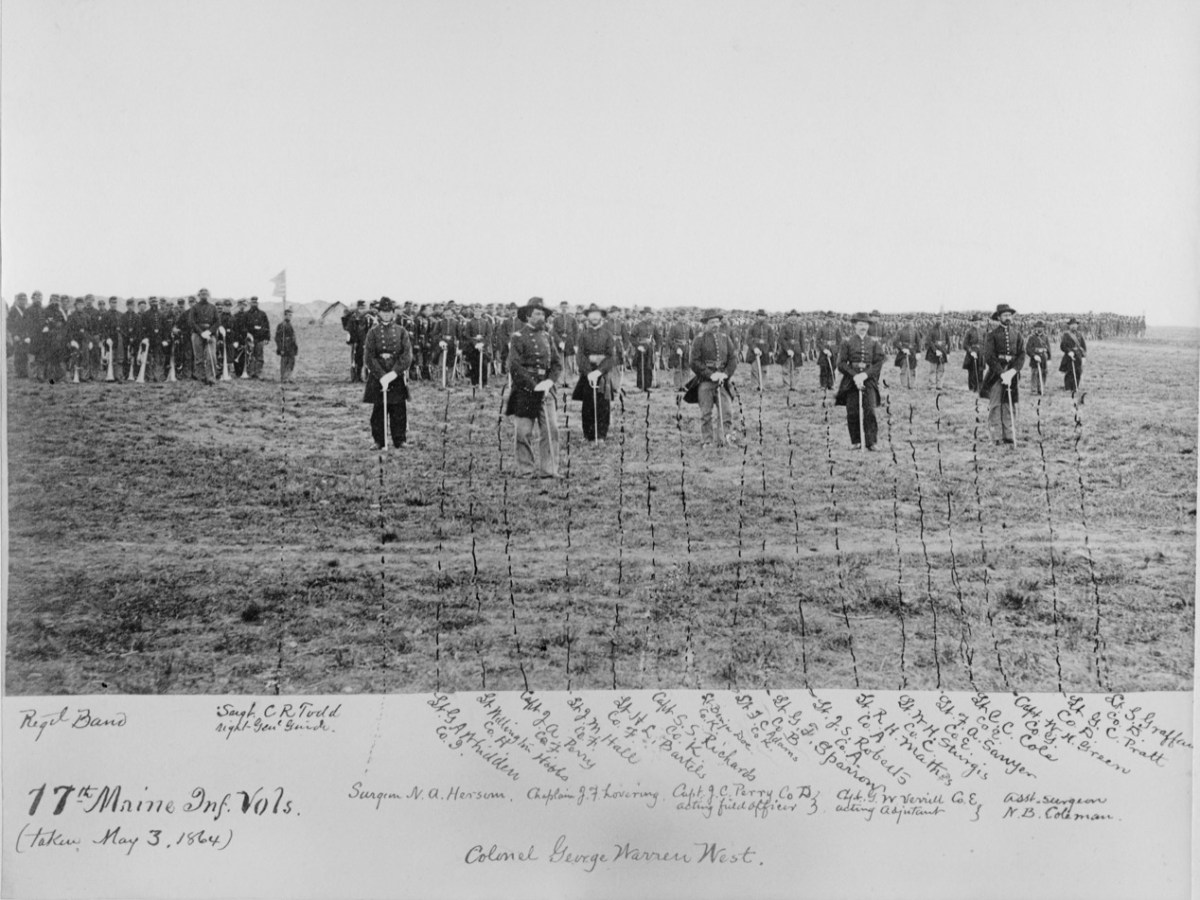 Regtl Band
Sergt. C R Todd
right Gen'l Guide.
Lt. G. A. Whidden
Co. I.
Lt Wellington Hobbs
Co. H
Capt J. A. Perry
Co. F
Lt. J. M. Hall
Co. F.
Lt. H. L. Bartels
Co. F.
Capt S. S. Richards
Co. K
Doe
Lt. F. C. Adams
Co. K
Lt. G. B. Sparrow
Co. B
Lt. J. S. Roberts
Co. A.
Lt. R. H. Mathes
Co. A
Lt. W. H. Sturgis
Co. C
Lt. F. A. Sawyer
Co. E
Lt. C. C. Cole
Co. E.
Capt. W. H. Green
Co. G.
Lt G. C. Pratt
Co. D
Lt S. Graffam
Co. B.
17th Maine Inf. Vols.
(taken May 3, 1864)
Surgeon N. A. Hersom.
Chaplain J. F. Lovering.
Capt. J. C. Perry Co. D }
acting field officer }.
Capt. G. W Verrill Co. E, }
acting Adjutant }
Asst. Surgeon
N. B. Coleman.
Colonel George Warren West.